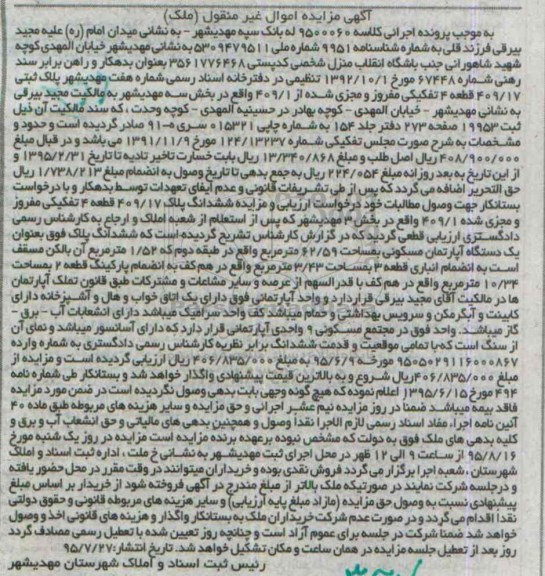 آگهی مزایده اموال غیر منقول (ملک)
به موجب پرونده اجرائی کلاسه ۹۵۰۰۰۶۰ له بانک سپه مهدیشهر - به نشانی میدان امام (ره) علیه مجید
بیرقی فرزند قلی به شماره شناسنامه ۹۹۵۱ شماره ملی ۵۳۰۹۴۷۹۵۱۱ به نشانی مهدیشهر خیابان المهدی کوچه
شهید شاهورانی جنب باشگاه انقلاب منزل شخصی کدپستی ۳۵۶۱۷۷۶۴۶۸ بعنوان بدهکار و راهن برابر سند
رهنی شماره ۶۷۴۴۸ مورخ ۱۳۹۲/۱۰/۱ تنظیمی در دفترخانه اسناد رسمی شماره هفت مهدیشهر پلاک ثبتی
۴۰۹/۱۷ قطعه ۴ تفکیکی مفروز و مجزی شده از ۴۰۹/۱ واقع در بخش سه مهدیشهر به مالکیت مجید بیرقی
به نشانی مهدیشهر - خیابان المهدی - کوچه بهادر در حسینیه المهدی - کوچه وحدت ، که سند مالکیت آن ذیل
ثبت ۱۹۹۵۳ صفحه ۲۷۳ دفتر جلد ۱۵۴ به شماره چاپی ۰۱۵۳۲۱ سری ه-۹۱ صادر گردیده است و حدود و
مشخصات به شرح صورت مجلس تفکیکی شماره ۱۲۴/۱۳۲۳۷ مورخ ۱۳۹۱/۱۱/۹ می باشد و در قبال مبلغ
۴۰۸/۹۰۰/۰۰۰ ریال اصل طلب و مبلغ ۱۳/۳۴۰/۸۶۸ ریال بابت خسارت تاخیر تادیه تا تاریخ ۱۳۹۵/۲/۳۱ و
از این تاریخ به بعد روزانه مبلغ ۲۲۴/۰۵۴ ریال به جمع بدهی تا تاریخ وصول به انضمام مبلغ ۱/۷۳۸/۲۱۳ ریال
حق التحریر اضافه می گردد که پس از طی تشریفات قانونی و عدم ایفای تعهدات توسط بدهکار و با درخواست
بستانکار جهت وصول مطالبات خود درخواست ارزیابی و مزایده ششدانگ پلاک ۴۰۹/۱۷ قطعه ۴ تفکیکی مفروز
و مجزی شده ۴۰۹/۱ واقع در بخش ۳ مهدیشهر که پس از استعلام از شعبه املاک و ارجاع به کارشناس رسمی
دادگستری ارزیابی قطعی گردید که در گزارش کارشناس تشریح گردیده است که ششدانگ پلاک فوق بعنوان
یک دستگاه آپارتمان مسکونی بمساحت ۶۲/۵۹ مترمربع واقع در طبقه دوم که ۱/۵۲ مترمربع آن بالکن مسقف
است به انضمام انباری قطعه ۳ بمساحت ۳/۴۳ مترمربع واقع در هم کف به انضمام پارکینگ قطعه ۲ بمساحت
۱۰/۳۴ مترمربع واقع در هم کف با قدر السهم از عرصه و سایر مشاعات و مشترکات طبق قانون تملک آپارتمان
ها در مالکیت آقای مجید بیرقی قرار دارد و واحد آپارتمانی فوق دارای یک اتاق خواب و هال و آشپزخانه دارای
کابینت و آبگرمکن و سرویس بهداشتی و حمام میباشد کف واحد سرامیک میباشد دارای انشعابات آب - برق -
گاز میباشد. واحد فوق در مجتمع مسکونی ۹ واحدی آپارتمانی قرار دارد که دارای آسانسور میباشد و نمای آن
از سنگ است که با تمامی موقعیت و قدمت ششدانگ برابر نظریه کارشناس رسمی دادگستری به شماره وارده
۹۵۰۵۰۲۹۱۱۶۰۰۰۸۶۷ مورخه ۹۵/۶/۹ به مبلغ ۴۰۶/۸۳۵/۰۰۰ ریال ارزیابی گردیده است و مزایده از
مبلغ ۴۰۶/۸۳۵/۰۰۰ ریال شروع و به بالاترین قیمت پیشنهادی واگذار خواهد شد و بستانکار طی شماره نامه
۴۹۴ مورخ ۱۳۹۵/۶/۱۵ اعلام نموده که هیچ گونه وجهی بابت بدهی وصول نگردیده است در ضمن مورد مزایده
فاقد بیمه میباشد ضمنا در روز مزایده نیم عشر اجرائی و حق مزایده و سایر هزینه های مربوطه طبق ماده ۴۰
آئین نامه اجرا، مفاد اسناد رسمی لازم الاجرا نقدا وصول و همچنین بدهی های مالیاتی و حق انشعاب آب و برق و
کلیه بدهی های ملک فوق به دولت که مشخص نبوده برعهده برنده مزایده است مزایده در روز یک شنبه مورخ
۹۵/۸/۱۶ از ساعت ۹ الی ۱۲ ظهر در محل اجرای ثبت مهدیشهر به نشانی خ ملت ، اداره ثبت اسناد و املاک
شهرستان ، شعبه اجرا برگزار می گردد فروش نقدی بوده و خریداران میتوانند در وقت مقرر در محل حضور یافته
و در جلسه شرکت نمایند در صورتیکه ملک بالاتر از مبلغ مندرج در آگهی فروخته شود از خریدار بر اساس مبلغ
پیشنهادی نسبت به وصول حق مزایده (مازاد مبلغ پایه ارزیابی) و سایر هزینه های مربوطه قانونی و حقوق دولتی
نقدا اقدام می گردد و در صورت عدم شرکت خریداران ملک به بستانکار واگذار و هزینه های قانونی اخذ و وصول
خواهد شد ضمنا شرکت در جلسه برای عموم آزاد است و چنانچه روز تعیین شده با تعطیل رسمی مصادف گردد
روز بعد از تعطیل جلسه مزایده در همان ساعت و مکان تشکیل خواهد شد. تاریخ انتشار: ۹۵/۷/۲۷
رئیس ثبت اسناد و املاک شهرستان مهدیشهر